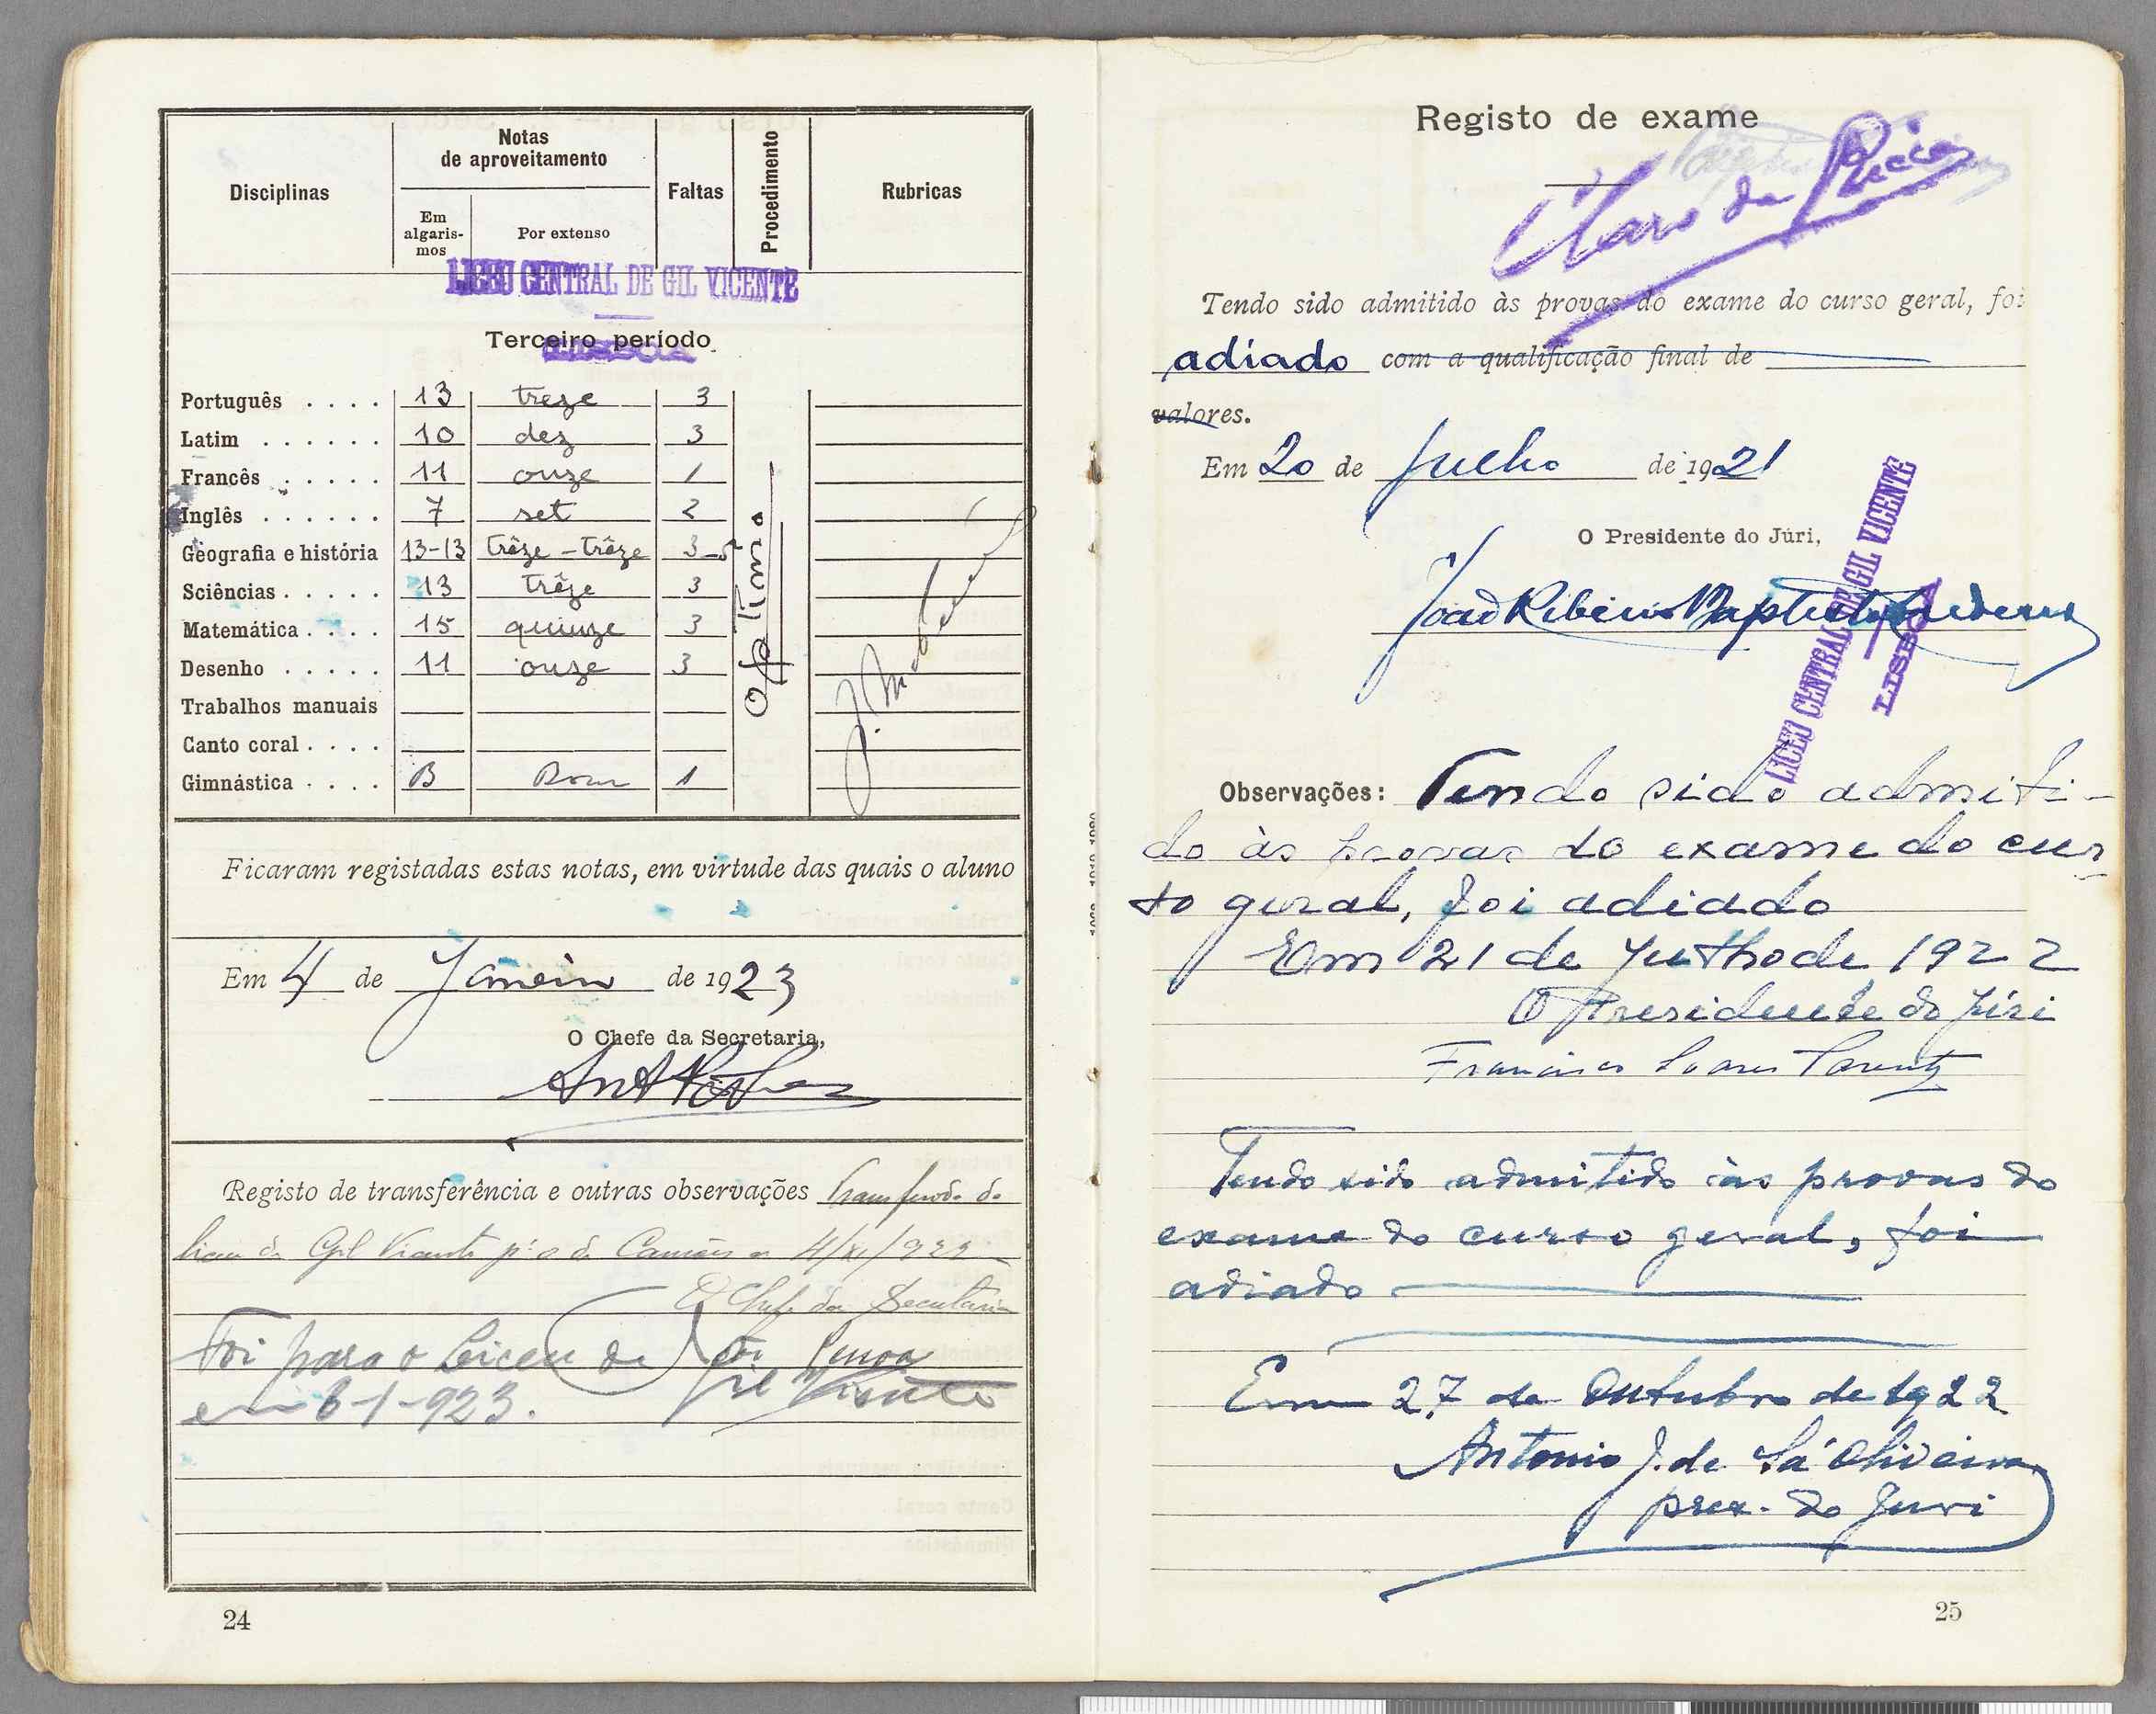 Disciplinas
Notas
de aproveitamento
Em
algaris-
mos
Por extenso
Faltas
Procedimento
Rubricas
LICEU CENTRAL DE GIL VICENTE
LISBOA
Terceiro período
Português . . . . 13 treze 3
Latim . . . . . . 10 dez 3
Francês . . . . . 11 onze 1
Inglês . . . . . . 7 set 2
Geografia e história 13-13 trêze - trêze 3-5
Sciências . . . . . 13 trêze 3
Matemática . . . . 15 quinze 3
Desenho . . . . . 11 onze 3
Trabalhos manuais
Canto coral . . . .
Gimnástica . . . . B Bom 1
Optimo
Ficaram registadas estas notas, em virtude das quais o aluno
Em 4 de Janeiro de 1923
O Chefe da Secretaria,
Registo de transferência e outras observações Transferido do
liceu de Gil Vicente pª o de Camões em 4/XI/922
O Chefe da Secretaria
Foi para o Liceu de
Gil Vicente
em 6-1-923.
24
Registo de exame
Tendo sido admitido às provas do exame do curso geral, foi
adiado com a qualificação final de
valores.
Em 20 de Julho de 1921
O Presidente do Júri,
João Ribeiro Baptista
LICEU CENTRAL DE GIL VICENTE
LISBOA
Observações: Tendo sido admiti-
do às provas do exame do cur-
so geral, foi adiado
Em 21 de Julho de 1922
O Presidente do Júri
Francisco Soares Parente
Tendo sido admitido às provas do
exame do curso geral, foi
adiado
Em 27 de Outubro de 1922
Antonio J. de Sá Oliveira
pres. do Juri
25